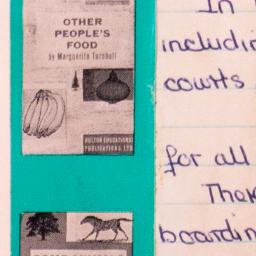 OTHER
PEOPLE'S
FOOD
by Marguerite Turnbull
HULTON EDUCATIONAL
PUBLICATIONS LTD
In
includin
courts
for all
Ther
boardin